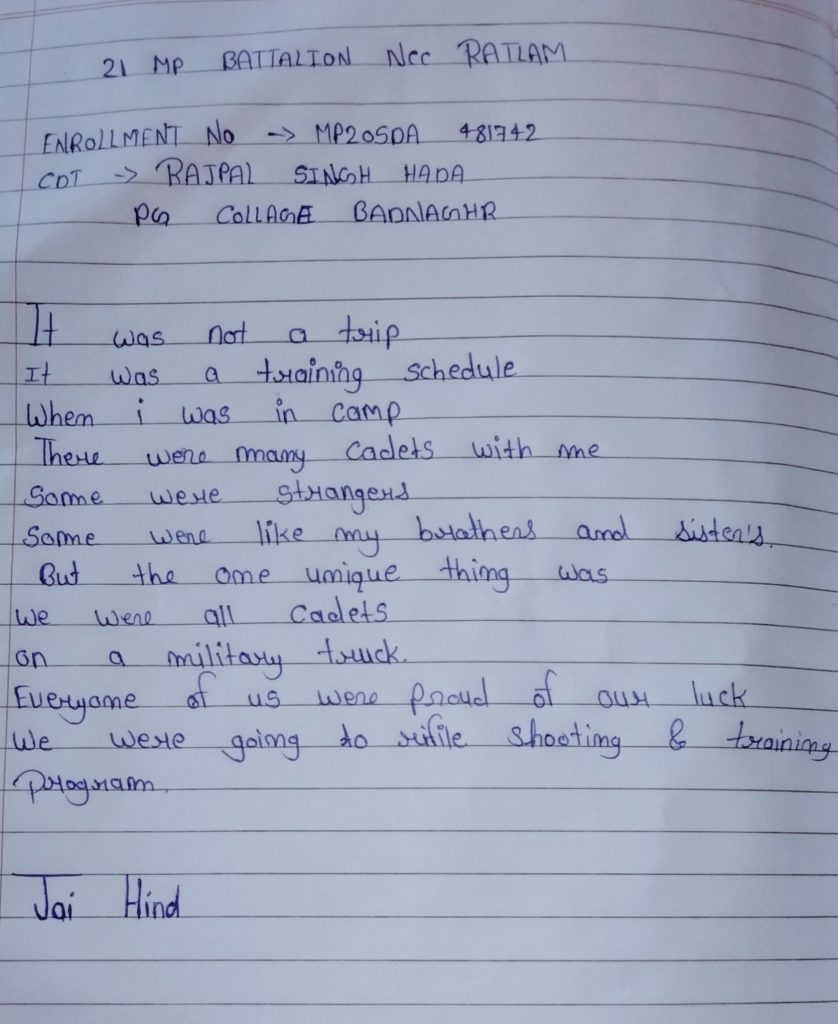 21 MP BATTALION NCC RATLAM
ENROLLMENT NO -> MP20SDA 481742
CDT -> RAJPAL SINGH HADA
PG COLLAGE BADNAGHR
It was not a trip
It was a training schedule
When i was in camp
There were many cadets with me
Some were strangers
Some were like my brothers and sister's.
But the one unique thing was
We were all cadets
on a military truck.
Everyone of us were proud of our luck
We were going to rifile shooting & training
program.
Jai Hind